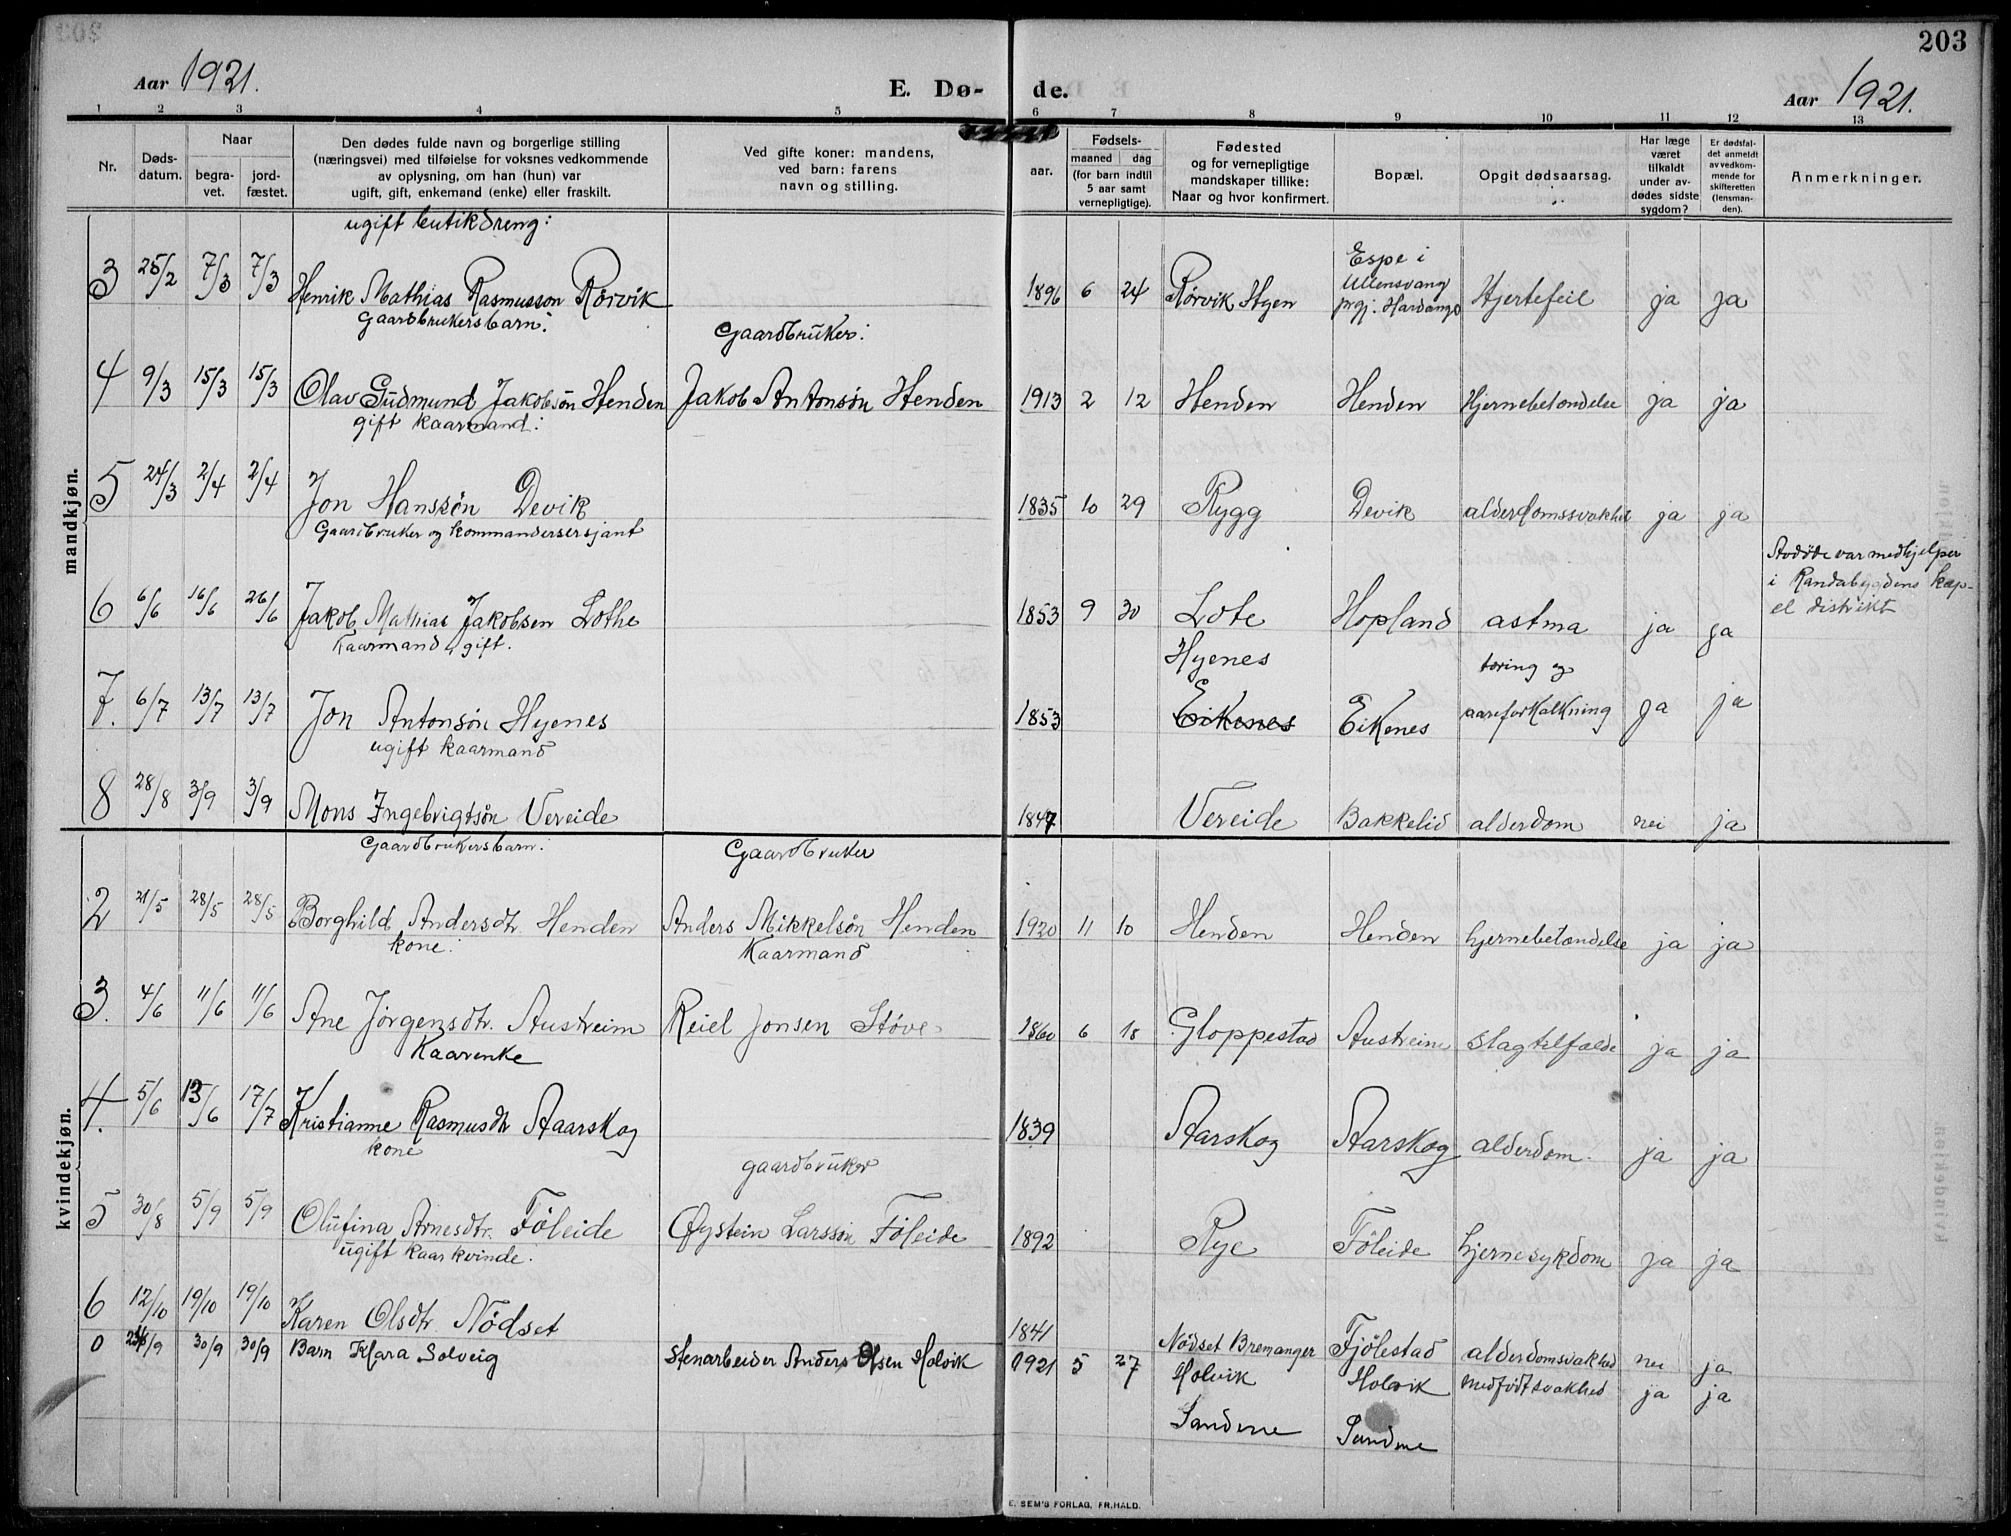 203
Aar 1921.
E. Dø- de.
Aar 1921.
1 2 3 4 5 6 7 8 9 10 11 12 13
Nr.
Døds-
datum.
Naar
begra-
vet.
jord-
fæstet.
Den dødes fulde navn og borgerlige stilling
(næringsvei) med tilføielse for voksnes vedkommende
av oplysning, om han (hun) var
ugift, gift, enkemand (enke) eller fraskilt.
Ved gifte koner: mandens,
ved barn: farens
navn og stilling.
aar.
Fødsels-
maaned dag
(for barn indtil
5 aar samt
vernepligtige).
Fødested
og for vernepligtige
mandskaper tillike:
Naar og hvor konfirmert.
Bopæl.
Opgit dødsaarsag.
Har læge
været
tilkaldt
under av-
dødes sidste
sygdom?
Er dødsfal-
det anmeldt
av vedkom-
mende for
skifteretten
(lensman-
den).
Anmerkninger.
mandkjøn.
ugift butikdreng:
3 25/2 7/3 7/3 Henrik Mathias Rasmusson Rørvik 1896 6 24 Rørvik Hyen Espe i
Ullensvang
prgj. Hardanger Hjertefeil ja ja
Gaardbrukersbarn: Gaardbruker:
4 9/3 15/3 15/3 Olav Gudmund Jakobsøn Henden Jakob Antonsøn Henden 1913 2 12 Henden Henden Hjernebetændelse ja ja
gift kaarmand:
5 24/3 2/4 2/4 Jon Hanssøn Devik 1835 10 29 Rygg Devik alderdomssvakhet ja ja
Gaardbruker og kommandersersjant
6 6/6 16/6 26/6 Jakob Mathias Jakobsen Lothe 1853 9 30 Lote Hopland astma ja ja
Avdøde var medhjelper
i Randabygdens kap-
el distrikt
Kaarmand, gift. Hyenes tæring og
7. 6/7 13/7 13/7 Jon Antonsøn Hyenes 1853 Eikenes Eikenes aareforkalkning ja ja
ugift kaarmand
8 28/8 3/9 3/9 Mons Ingebrigtsøn Vereide 1847 Vereide Bakkelid alderdom nei ja
kvindekjøn.
Gaardbrukersbarn: Gaardbruker
2 21/5 28/5 28/5 Borghild Andersdtr. Henden Anders Mikkelsøn Henden 1920 11 10 Henden Henden hjernebetændelse ja ja
kone: Kaarmand
3. 4/6 11/6 11/6 Ane Jørgensdtr. Austreim Reiel Jonsen Støve 1860 6 18 Gloppestad Austreim slagtilfælde ja ja
Kaarenke
4. 5/6 13/6 17/7 Kristianne Rasmusdtr Aaarskog 1839 Aarskog Aarskog alderdom. ja ja
kone gaardbruker
5 30/8 5/9 5/9 Olufina Arnesdtr. Føleide Øystein Larssøn Føleide 1892 Rye Føleide hjernesykdom ja ja
ugift kaarkvinde.
6 12/10 19/10 19/10 Karen Olsdtr. Nødset 1841 Nødset Bremanger Fjølestad alderdomsvakhed nei ja
0 /9 30/9 30/9 Barn Klara Solveig Stenarbeider Anders Olsen Holvik 1921 5 27 Holvik Holvik medfødt svakhed ja ja
Sandene Sandene
E. SEM'S FORLAG, FR.HALD.